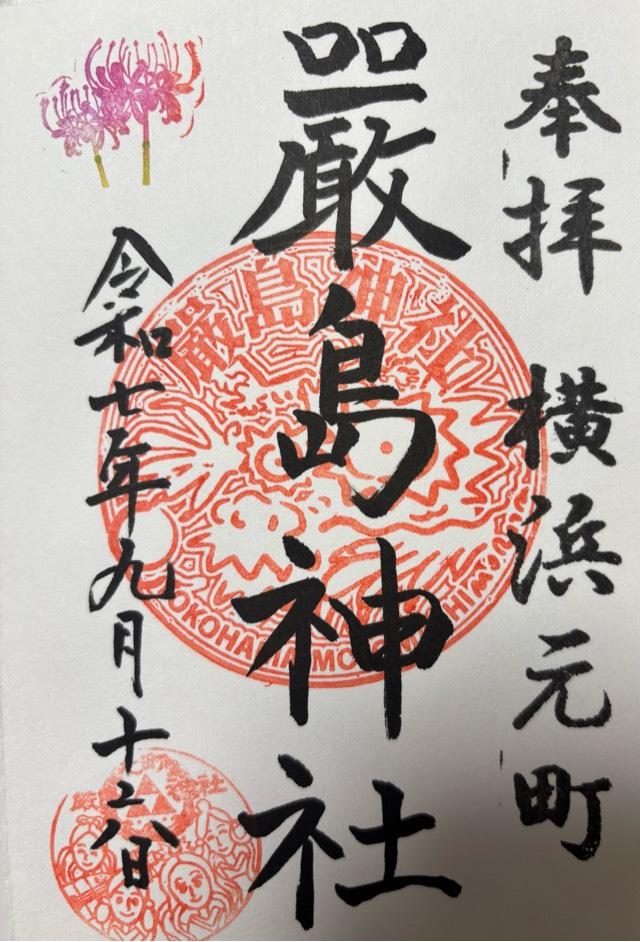 奉拝 横浜元町
嚴島神社
令和七年九月十六日
厳島神社
YOKOHAMA